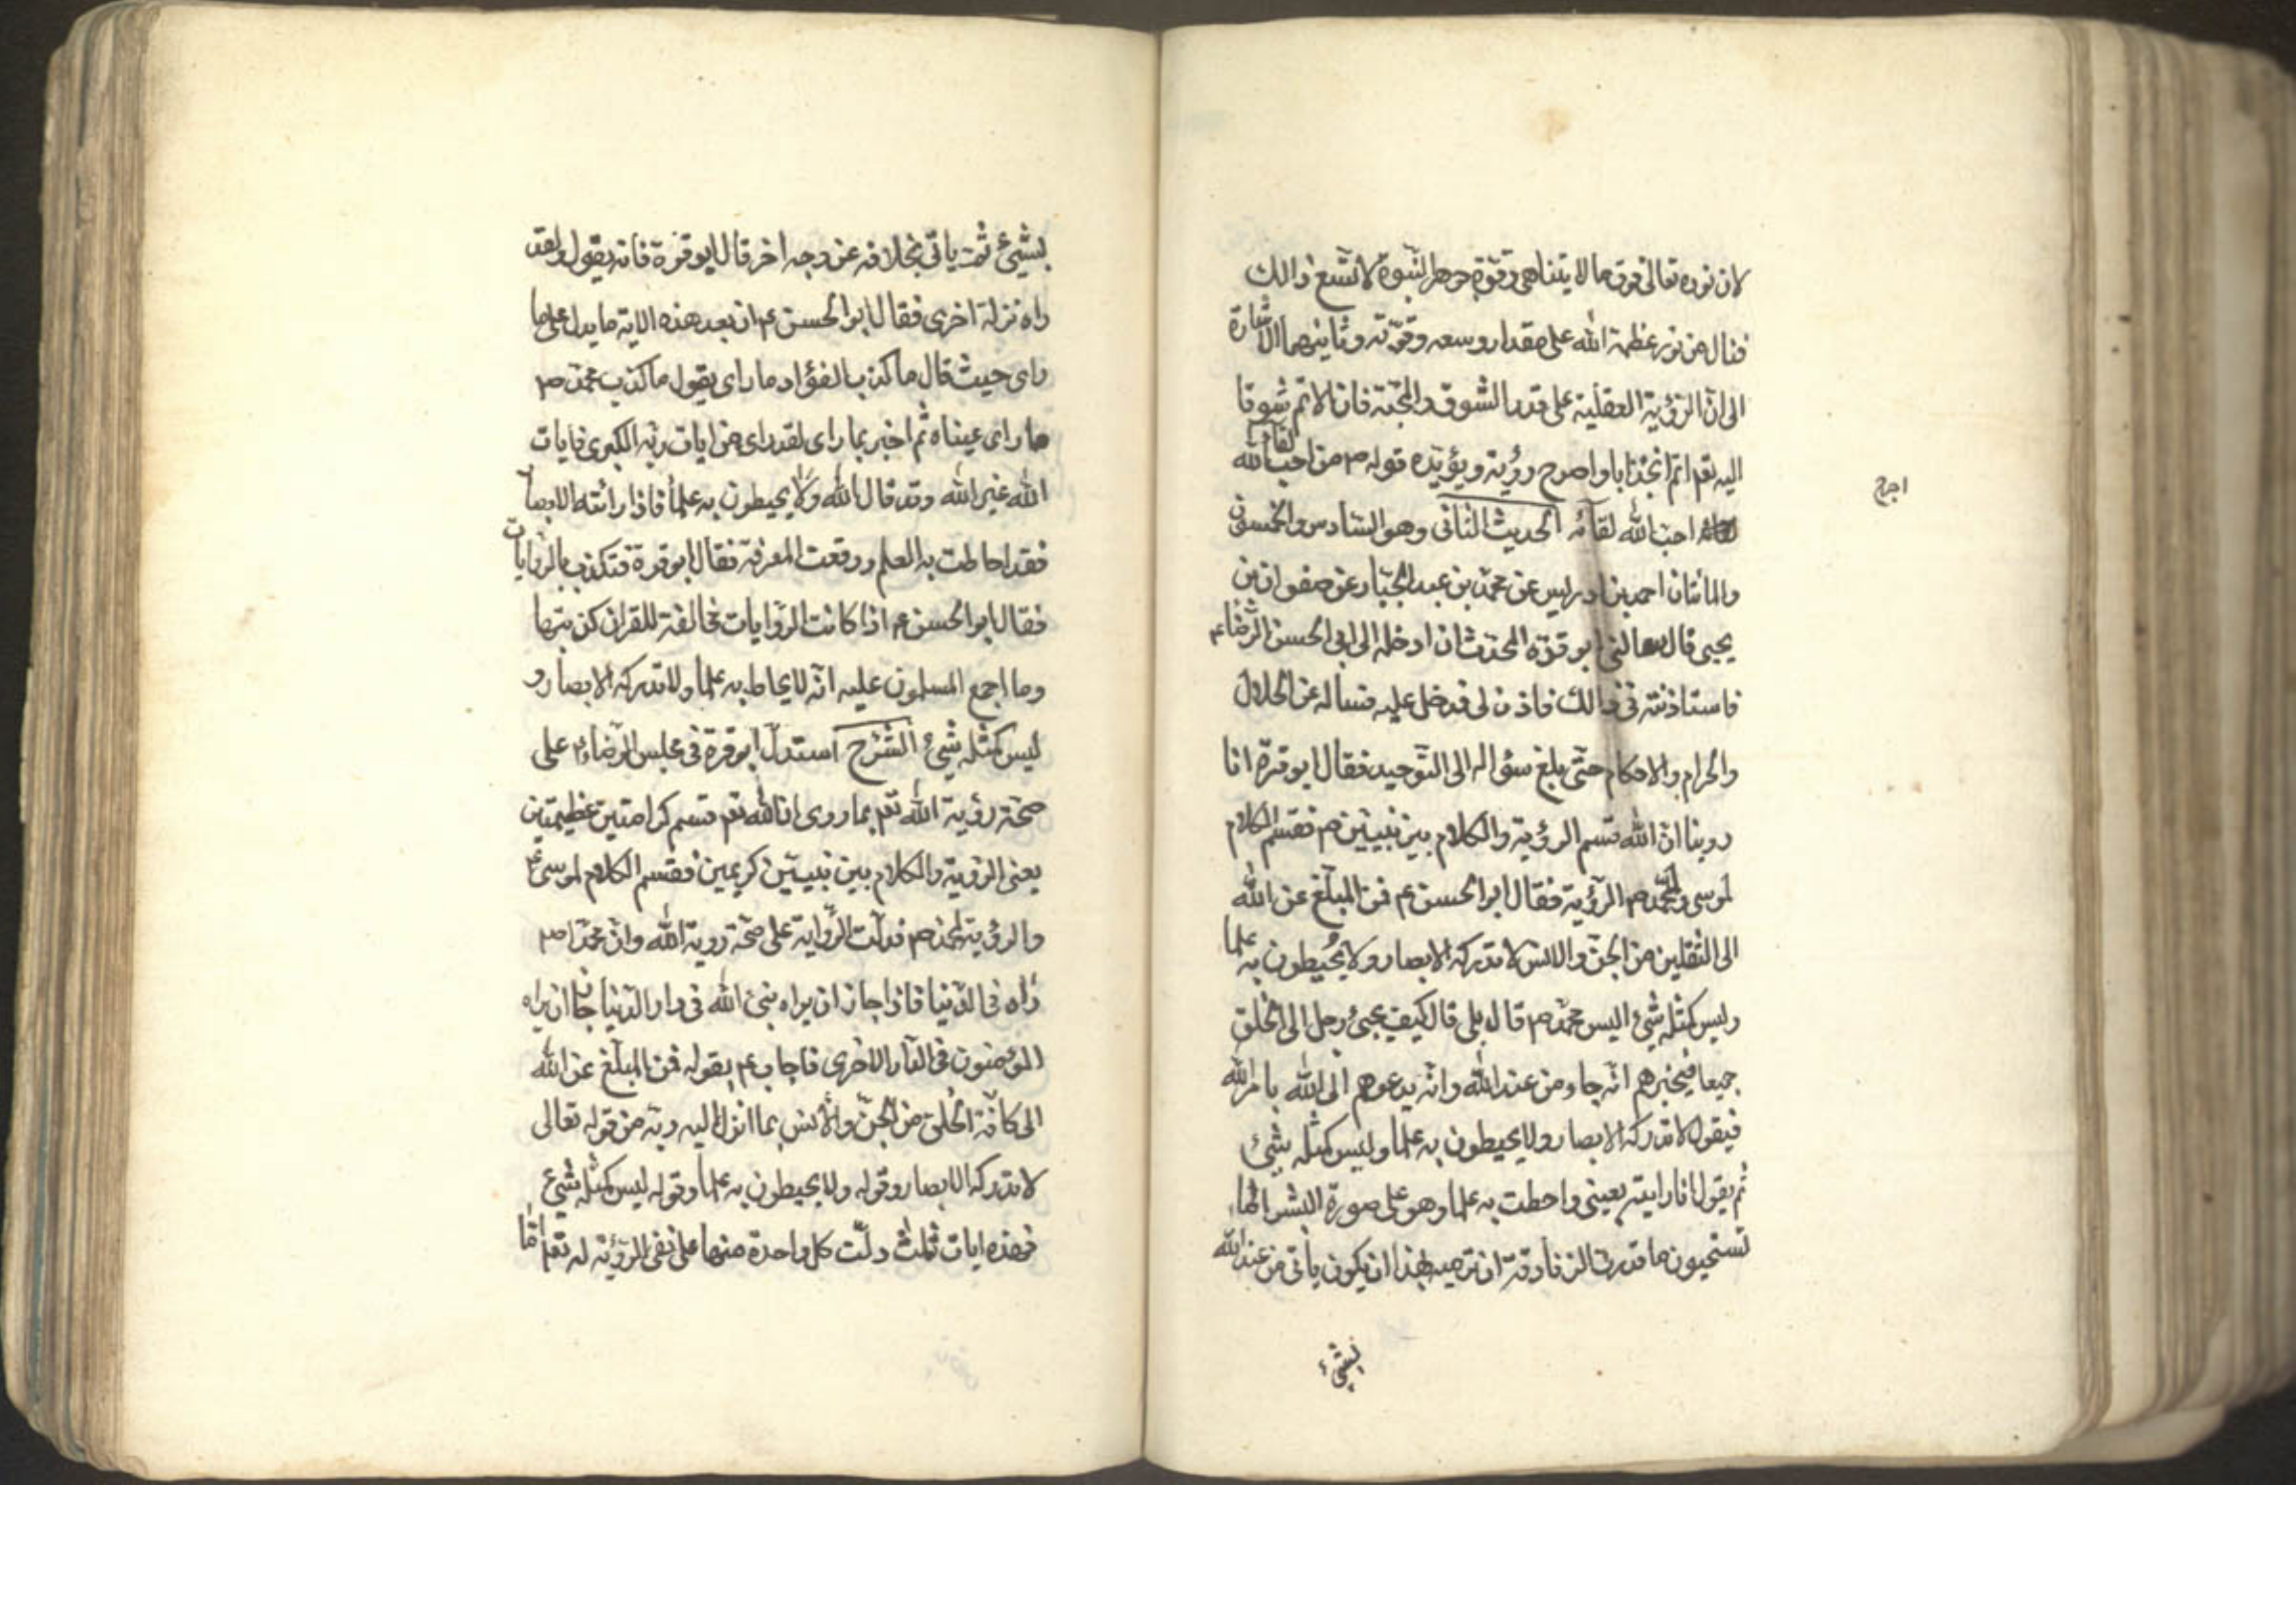 لان نوره تعالى فوق ما لا يتناهى وقوة جوهر النبوة لا تسع ذالك
فنال من نور عظمة الله على مقدار وسعه وقوّته وثانيهما الاشارة
الى انّ الرؤية العقلية على قدر الشوق والمحبّة فان الاتم شوقا
اليه تعم اتم انجذابا واصرح رؤية ويؤيّده قوله ص من احب لقاء الله
احب الله لقائه الحديث الثانى وهو السّادس والخمسون
والمأتان احمد بن ادريس عن محمّد بن عبد الجبّار عن صفوان بن
يحيى قال سالنى ابو قرّة المحدّث ان ادخله الى ابى الحسن الرّضا ع
فاستاذنته فى ذالك فاذن لى فدخل عليه فساله عن الحلال
والحرام والاحكام حتّى بلغ سؤاله الى التّوحيد فقال ابو قرّة انا
روينا انّ الله قسم الرؤية والكلام بين نبيين ص فقسم الكلام
لموسى ولمحمّد ص الرؤية فقال ابو الحسن ع فمن المبلّغ عن الله
الى الثقلين من الجنّ والانس لا تدركه الابصار ولا يُحيطون به علما
وليس كمثله شئ اليس محمّد ص قال بلى قال كيف يجئ رجل الى الخلق
جميعا فيخبرهم انّه جاء من عند الله وانّه يدعوهم الى الله بامر الله
فيقول لا تدركه الابصار ولا يحيطون به علما وليس كمثله شئ
ثم يقول انا رايته بعينى واحطت به علما وهو على صورة البشر اما
تستحيون ما قدرت الزنادقة ان ترميه بهذا ان يكون ياتى من عند الله
بشئ
بشئ ثمّ ياتى بخلافه عن وجه اخر قال ابو قرة فانه يقول ولقد
راه نزلة اخرى فقال ابو الحسن ع ان بعد هذه الاية ما يدل على ما
راى حيث قال ما كذب الفؤاد ما راى يقول ما كذب محمّد ص
ما راى عيناه ثم اخبر بما راى لقد راى من ايات ربّه الكبرى فايات
الله غير الله وقد قال الله ولا يحيطون به علماً فاذا رائته الابصار
فقد احاطت به العلم ووقعت المعرفة فقال ابو قرة فتكذب بالروايات
فقال ابو الحسن ع اذا كانت الرّوايات مخالفة للقران كذبتها
وما اجمع المسلمون عليه انّه لا يحاط به علما ولا تدركه الابصار و
ليس كمثله شئ الشرح استدلّ ابو قرة فى مجلس الرّضا ع على
صحّة رؤية الله تعم بما روى ان الله تعم قسم كرامتين عظيمتين
يعنى الرؤية والكلام بين نبيين كريمين فقسم الكلام لموسى ع
والرؤية لمحمد ص فدلّت الرّواية على صحّة روية الله وانّ محمّدا ص
رأه فى الدّنيا فاذا جاز ان يراه نبىّ الله فى دار الدّنيا جاز ان يراه
المؤمنون فى الدّار الاخرى فاجاب ع بقوله فمن المبلّغ عن الله
الى كافّة الخلق من الجنّ والانس بما انزل اليه ربّه من قوله تعالى
لا تدركه الابصار وقوله ولا يحيطون به علما وقوله ليس كمثله شئ
فهذه ايات ثلث دلّت كل واحدة منها على نفى الرؤية له تعم امّا